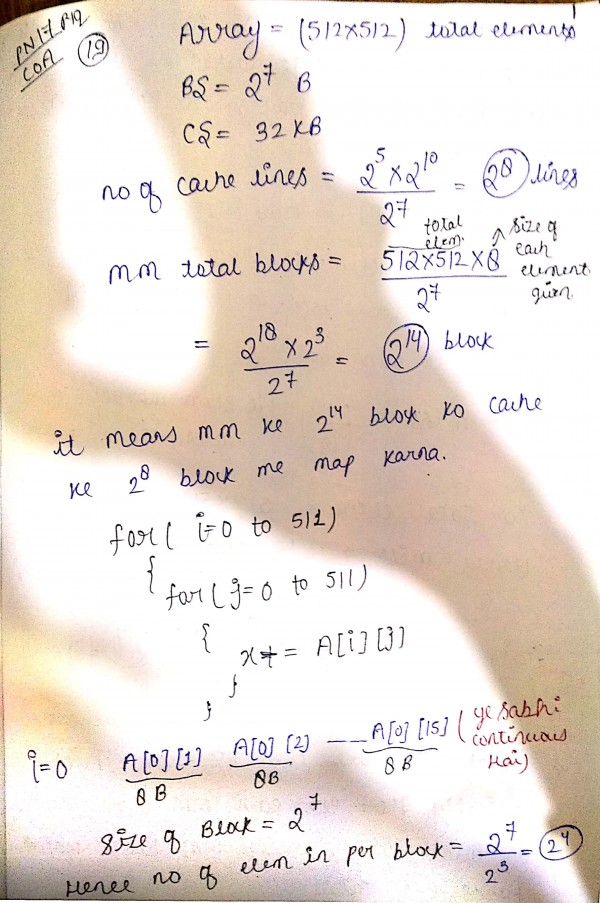 PN17 P12
COA
19
Array = (512x512) total elements
BS = 2^7 B
CS = 32 KB
no of cache lines = (2^5 x 2^10) / 2^7 = 2^8 lines
mm total blocks = (512x512x8) / 2^7
total elem.
size of each element given
= (2^18 x 2^3) / 2^7 = 2^14 block
it means mm ke 2^14 block ko cache
ke 2^8 block me map karna.
for( i=0 to 511)
{
for( j=0 to 511)
{
x += A[i][J]
}
}
i=0 A[0][1] A[0][2] -- A[0][15] ( ye sabhi continuous hai)
8B 8B 8B
Size of Block = 2^7
Hence no of elem in per block = 2^7 / 2^3 = 2^4